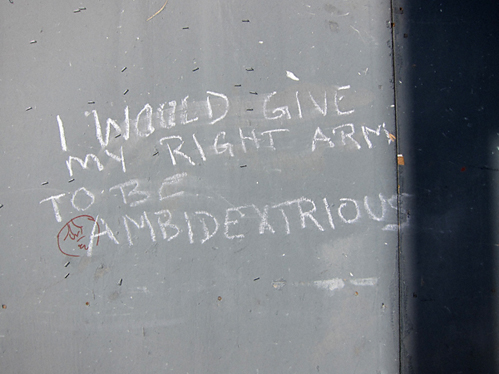 I WOULD GIVE
MY RIGHT ARM
TO BE
AMBIDEXTRIOUS